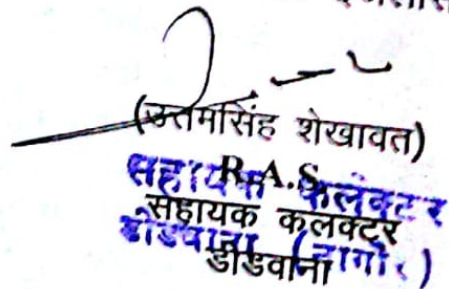 (उत्तमसिंह शेखावत)
R.A.S.
सहायक कलंक्टर
सहायक कलक्टर
डीडवाना